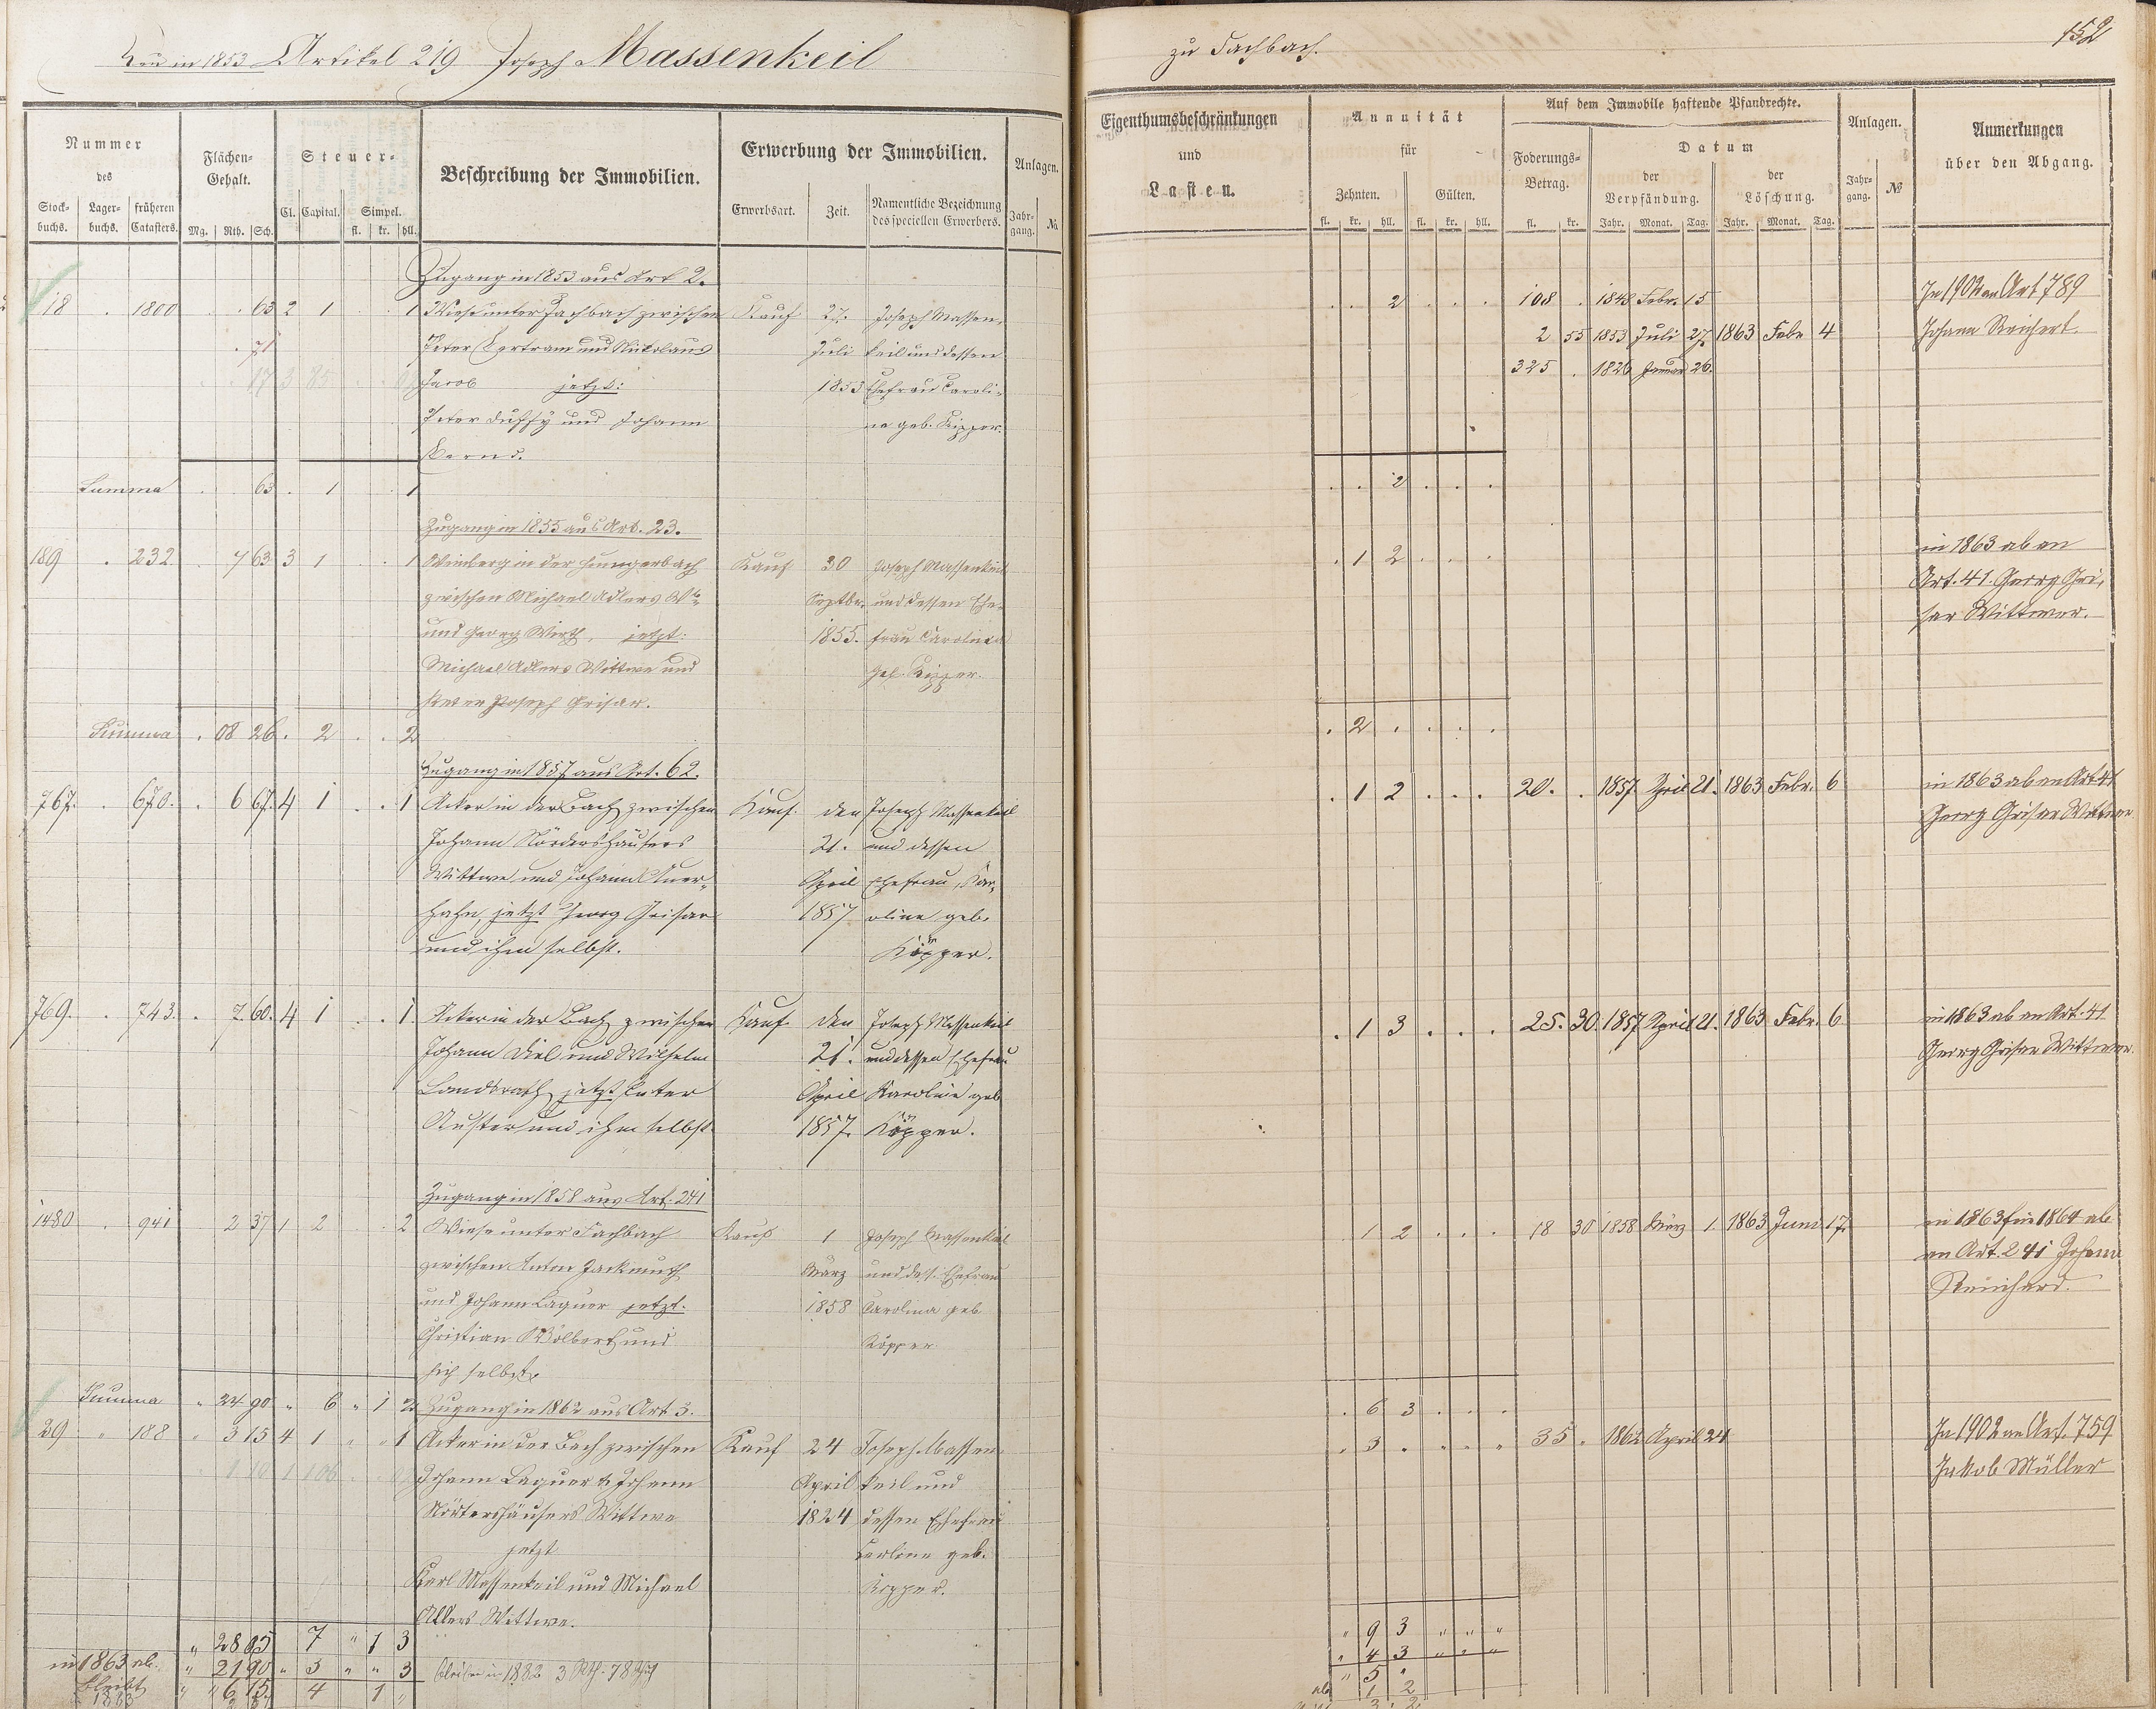 Neu in 1853 Artikel 219 Joseph Massenkeil
zu Fachbach.
152
Nummer des
Stockbuchs. Lagerbuchs. früheren Catasters.
Flächen-Gehalt.
Mg. Rth. Sch.
Steuer-
Cl. Capital. Simpel.
fl. kr. hll.
Beschreibung der Immobilien.
Erwerbung der Immobilien.
Erwerbsart. Zeit. Namentliche Bezeichnung des speciellen Erwerbers.
Anlagen.
Jahrgang. №
Eigenthumsbeschränkungen und Lasten.
Annuität für
Zehnten. Gülten.
fl. kr. hll. fl. kr. hll.
Auf dem Immobile haftende Pfandrechte.
Foderungs-Betrag.
fl. kr.
Datum
der Verpfändung. der Löschung.
Jahr. Monat. Tag. Jahr. Monat. Tag.
Anlagen.
Jahrgang. №
Anmerkungen über den Abgang.
Zugang in 1853 aus Art 2.
18 . 1800 . . 63 2 1 . . 1 Wiese unter Fachbach zwischen Kauf 27. Joseph Massen- . . 2 . . . 108 . 1848 Febr. 15 In 1902 an Art 789
Peter Bertram und Nikolaus Juli keil und dessen 2 55 1853 Juli 27. 1863 Febr 4 Johann Reichert
17 3 85 Jacob jetzt: 1853 Ehefrau Caroli- 325 . 1826 Januar 26.
Peter Duffy und Johann ne geb. Kipper.
Bernd.
Summa . . 63 . 1 . . 1 . . 2 . . .
Zugang in 1855 aus Art. 23.
189 . 232 . 7 63 3 1 . . 1 Weinberg in der Hungerbach Kauf 30 Joseph Massenkeil . 1 2 . . . in 1863 ab an
zwischen Michael Adlers Wb. Septbr. und dessen Ehe- Art. 41. Georg Gri-
und Georg Wirth, jetzt: 1855. frau Carolina sar Wittwer.
Michael Adlers Wittwe und geb. Kipper.
Joseph Grisar.
Summa . 08 26 . 2 . . 2 . 2 . . . .
Zugang in 1857 aus Art. 62.
767. . 670. . 6 67. 4 1 . . 1 Acker in der Bach zwischen Kauf. den Joseph Massenkeil . 1 2 . . . 20. . 1857 April 21. 1863 Febr. 6 in 1863 ab an Art. 41
Johann Nördershäusers 21. und dessen Georg Grisar Wittwer
Wittwe und Johann Auer- April Ehefrau, Kar-
hahn, jetzt Georg Grisar 1857 oline geb.
und ihm selbst. Köpper.
769. . 743. . 7. 60. 4 1 . . 1. Acker in der Bach zwischen Kauf den Joseph Massenkeil . 1 3 . . . 25. 30. 1857 April 21. 1863 Febr. 6 in 1863 ab an Art. 41
Johann Diel und Wilhelm 21. und dessen Ehefrau Georg Grisar Wittwer.
Landsrath jetzt Peter April Karoline geb
Auster und ihm selbst 1857. Köpper.
Zugang in 1858 aus Art. 241
1480 . 941 2 37 1 2 . . 2 Wiese unter Fachbach Kauf 1 Joseph Massenkeil 1 2 . . . 18 30 1858 März 1. 1863 Juni 17. in 1863 für 1864 ab
zwischen Anton Zackmuth März und dess. Ehefrau an Art. 241 Johann
und Johann Laquer jetzt. 1858 Carolina geb Reinhard.
Christian Wölbert und Köpper
sich selbst.
Summa " 24 90 " 6 " 1 2 Zugang in 1862 aus Art 3. . 6 3 . . .
29 " 188 " 3 15 4 1 " " 1 Acker in der Bach zwischen Kauf 24 Joseph Massen- . 3 . . . . 35 . 1862 April 24 In 1902 an Art. 759
1 106 Johann Laquer & Johann April keil und Jakob Müller
Nörtershäusers Wittwe 1824 dessen Ehefrau
jetzt Carline geb.
Karl Massenkeil und Michael Kopper.
Adlers Wittwe.
" 28 05 7 " 1 3 " 9 3 " " "
in 1863 ab. " 21 90 " 3 " " 3 bleiben in 1882 3 Rth. 78 Sch. " 4 3 " " "
bleibt " 6 15 4 1 " " 5 "
1863 ab 1 2